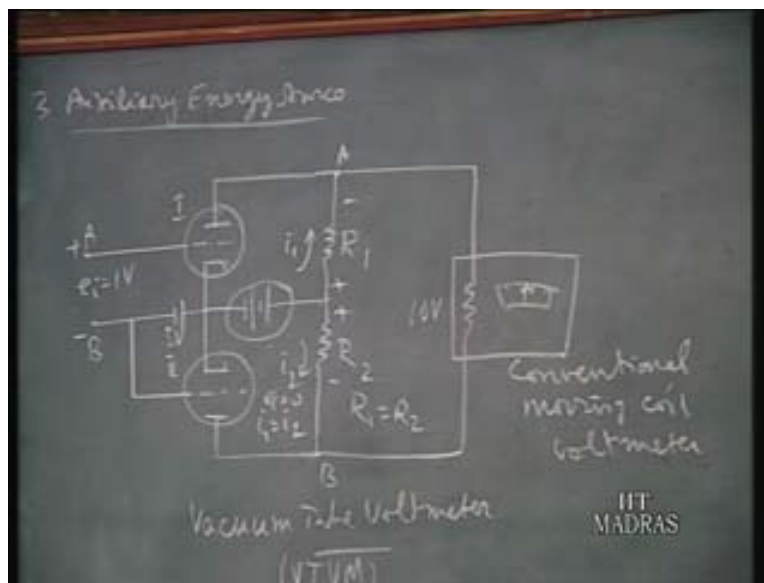 3 Auxiliary Energy Source
A
I
+A
i₁
R₁
-
eᵢ=1V
+
+
10V
-B
II
i₂
R₂
-
eᵢ=0
i₁=i₂
R₁=R₂
B
Conventional
moving coil
voltmeter
Vacuum Tube Voltmeter
(VTVM)
IIT
MADRAS